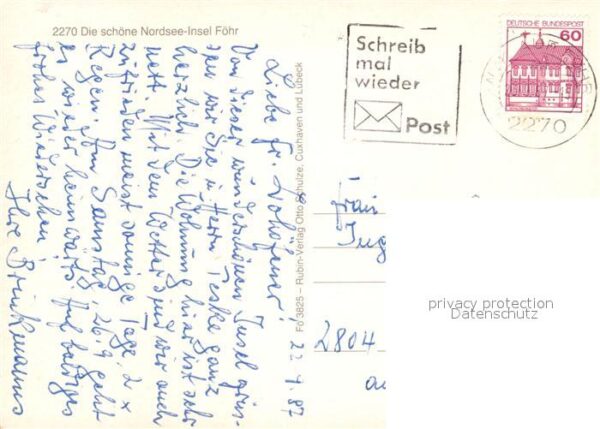 2270 Die schöne Nordsee-Insel Föhr
Schreib
mal
wieder
Post
DEUTSCHE BUNDESPOST
60
2270
Fö 3825 – Rubin-Verlag Otto Schulze, Cuxhaven und Lübeck
22.9.87
Liebe Fr.
Von dieser wunderschönen Insel grüs-
sen wir Sie u. Herrn Teske ganz
herzlich. Die Wohnung hier ist sehr
nett. Mit dem Wetter sind wir auch
zufrieden, meist sonnige Tage, 2 x
Regen. Am Samstag 26.9. geht
es wieder heimwärts. Auf baldiges
frohes Wiedersehen!
Ihre Brinkmanns
Frau
2804
privacy protection
Datenschutz